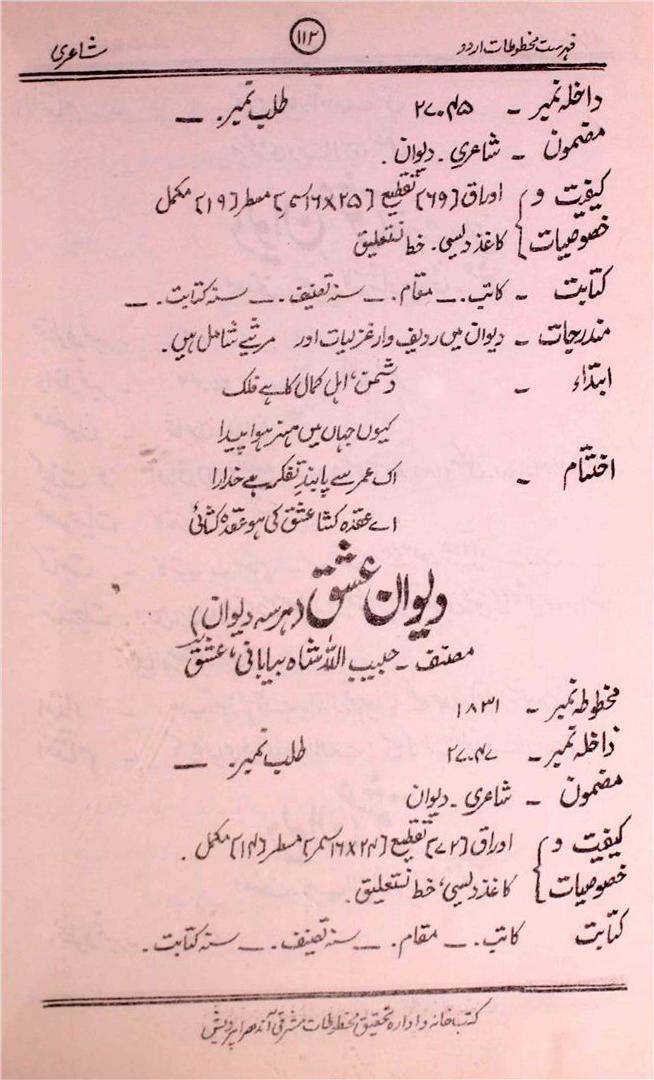 فہرست مخطوطات اردو ۱۱۲ شاعری
داخلہ نمبر - ۲۷۰۴۵ طلب نمبر. —
مضمون - شاعری. دیوان.
کیفیت و خصوصیات } اوراق [۶۹] تقطیع [۲۵×۱۶ سم] مسطر [۱۹] مکمل
کاغذ دیسی. خط نستعلیق
کتابت - کاتب. — مقام. — سنہ تصنیف. — سنہ کتابت. —
مندرجات - دیوان میں ردیف وار غزلیات اور مرثیے شامل ہیں.
ابتداء - دشمنِ اہلِ کمال کا ہے فلک
کیوں جہاں میں ہنر ہوا پیدا
اختتام - اک عمر سے پابندِ تفکر ہے خدارا
اے عقدہ کشا عشق کی ہو عقدہ کشائی
دیوان عشق (ہر سہ دیوان)
مصنف - حبیب اللہ شاہ بیابانی، عشق
مخطوطہ نمبر - ۱۸۳۱
داخلہ نمبر - ۲۷۰۴۷ طلب نمبر. —
مضمون - شاعری. دیوان
کیفیت و خصوصیات } اوراق [۷۲] تقطیع [۲۴×۱۶ سمر] مسطر [۱۴] مکمل.
کاغذ دیسی، خط نستعلیق.
کتابت کاتب. — مقام. — سنہ تصنیف. — سنہ کتابت. —
کتبخانہ و ادارہ تحقیق مخطوطات مشرقی آندھرا پردیش